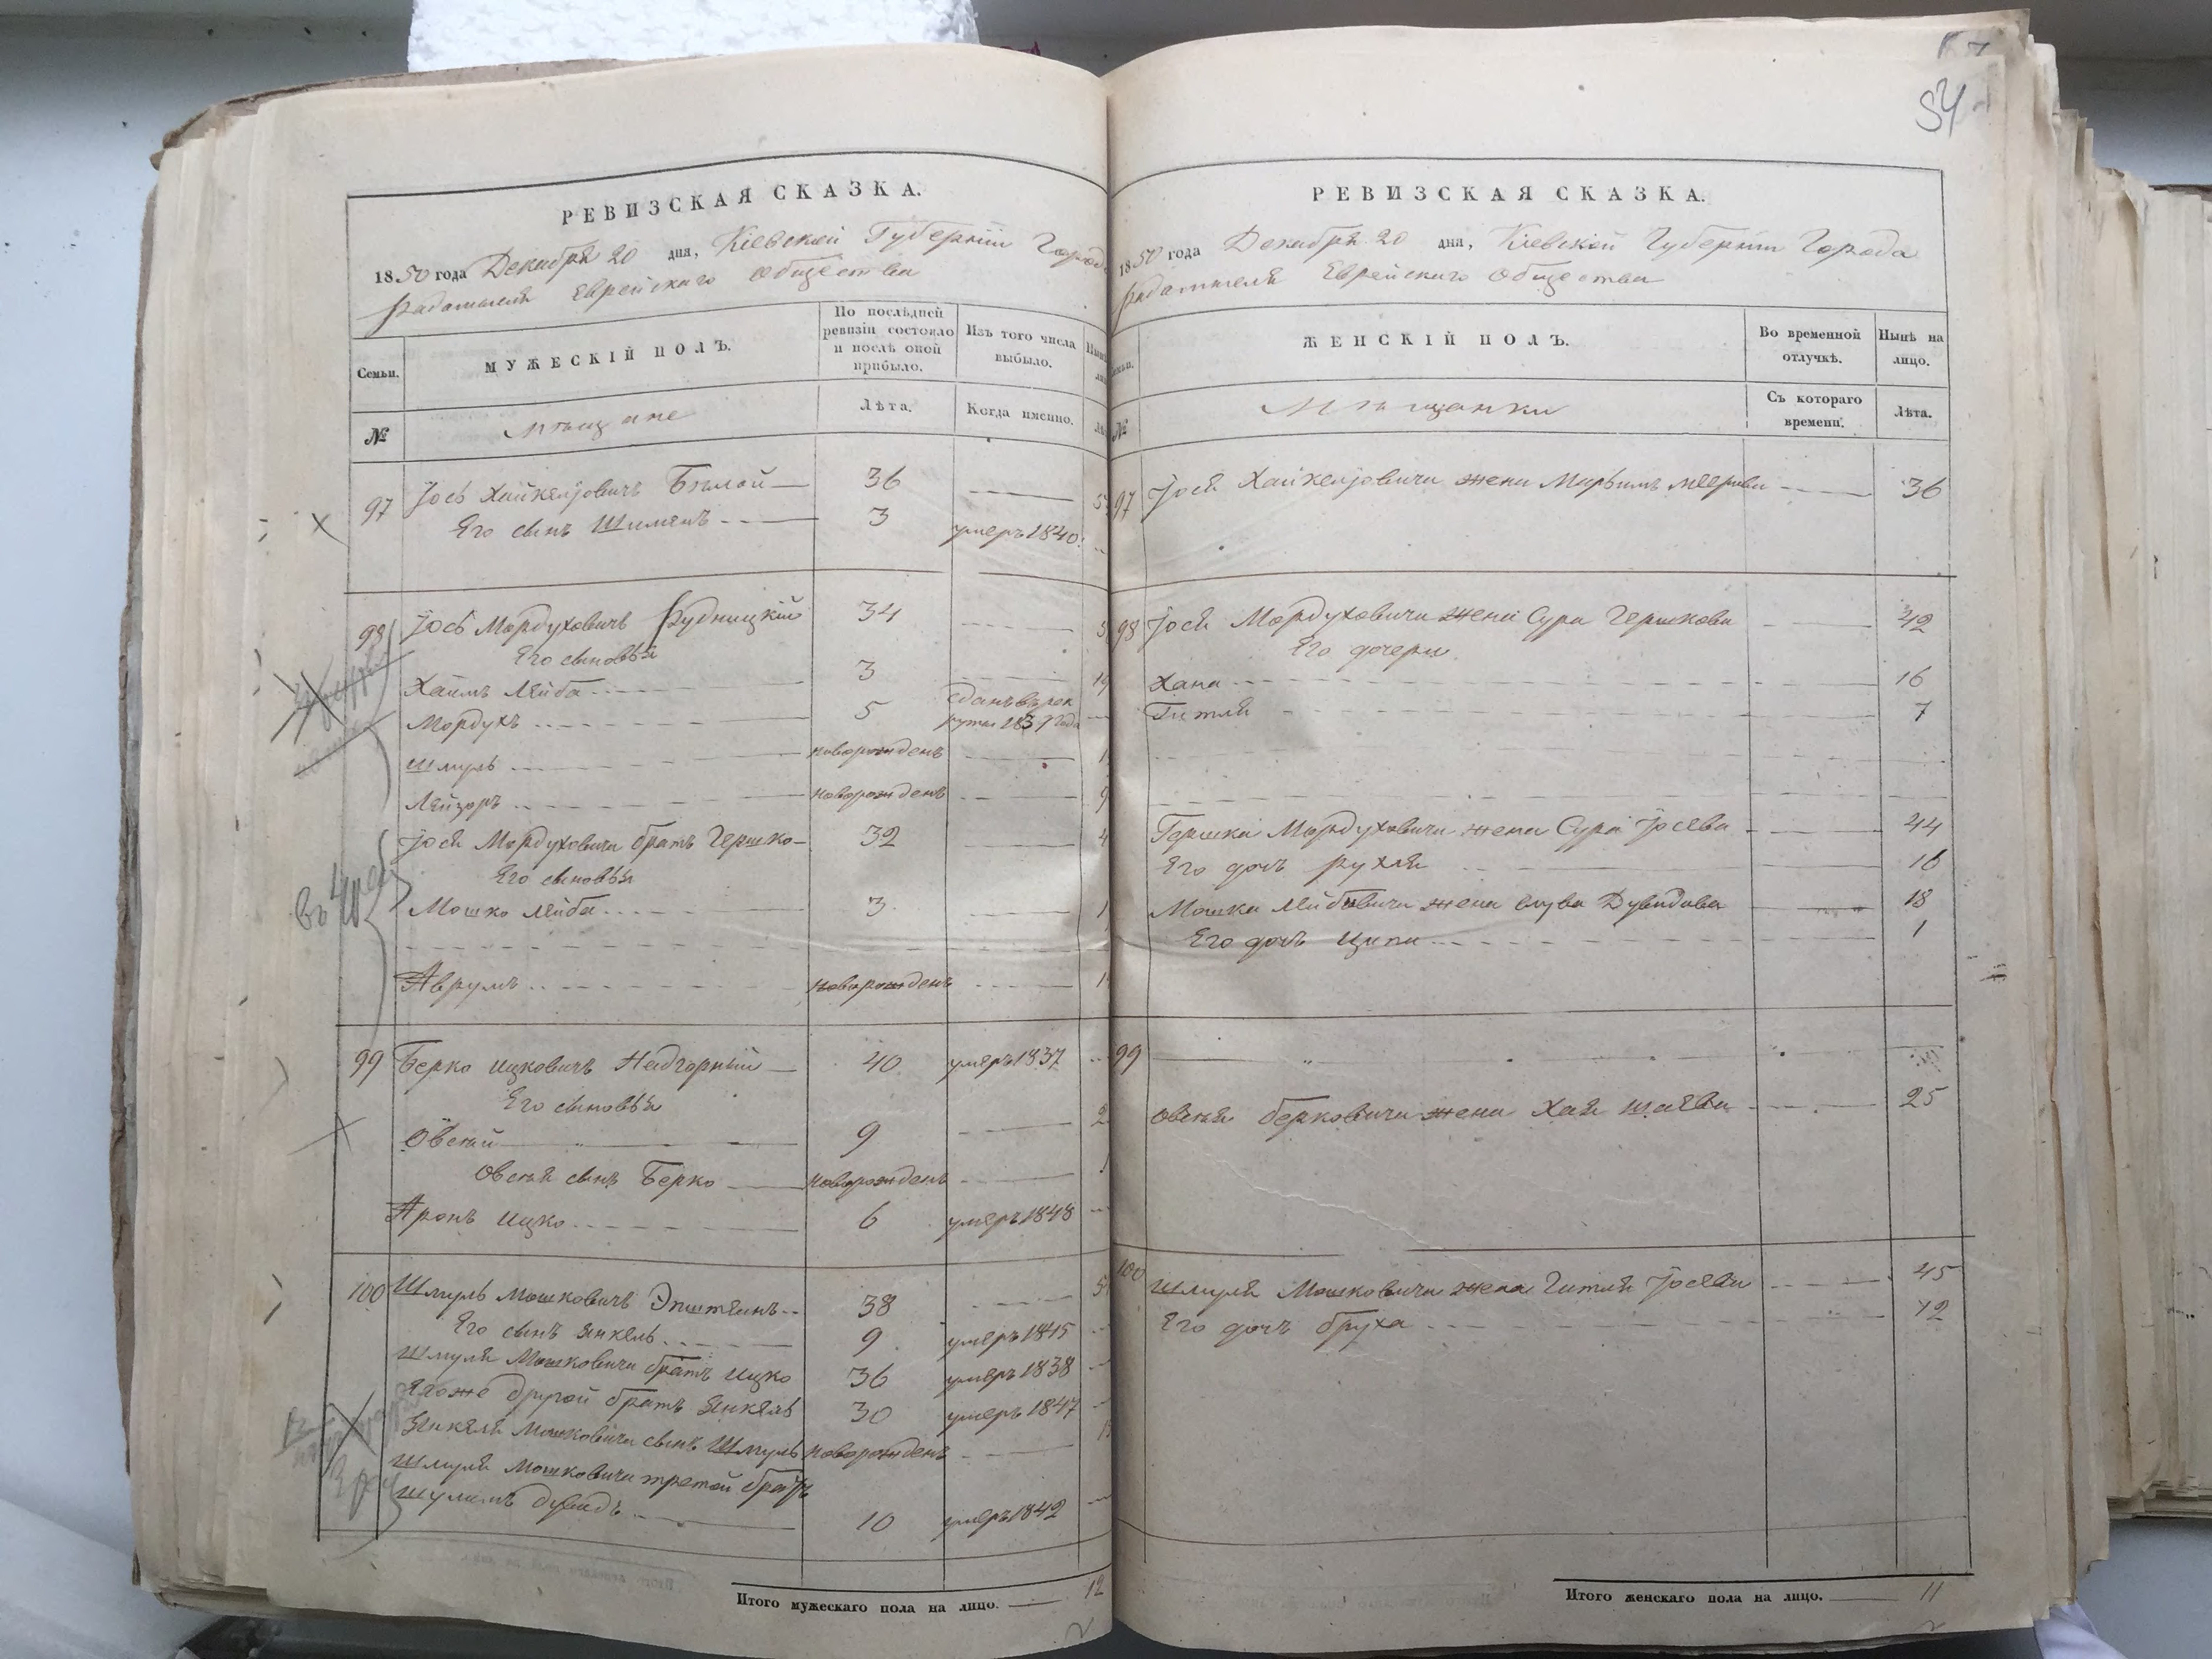 РЕВИЗСКАЯ СКАЗКА.
1850 года Декабря 20 дня, Кіевской Губерніи Города
Радомысля Еврейскаго Общества
Семьи.
МУЖЕСКІЙ ПОЛЪ.
По послѣдней ревизіи состояло и послѣ оной прибыло.
Изъ того числа выбыло.
№
Мѣщане
Лѣта.
Когда именно.
97 Іось Хайкелјовичъ Бѣлой 36
Его сынъ Шимонъ 3 умеръ 1840
98 Іось Мордуховичъ Рудницкій 34
Его сыновья
Хаимъ Лейба 3
Мордухъ 5 сданъ въ рекруты 1839 года
Шмуль новорожденъ
Лейзоръ новорожденъ 9
Іося Мордуховича братъ Гершко 32
Его сыновья
Въ
Мошко Лейба 3
Аврумъ новорожденъ
99 Берко Ицковичъ Надгорный 40 умеръ 1837
Его сыновья
Овсѣй 9
Овсѣя сынъ Берко новорожденъ
Аронъ Ицко 6 умеръ 1848
100 Шмуль Мошковичъ Эпштеинъ 38
Его сынъ Янкель 9 умеръ 1845
Шмуля Мошковича братъ Ицко 36 умеръ 1838
Егоже другой братъ Янкель 30 умеръ 1847
Янкеля Мошковича сынъ Шмуль новорожденъ
Шмуля Мошковича третой братъ
Шулимъ Дувидъ 10 умеръ 1842
Итого мужескаго пола на лицо. 12
54
РЕВИЗСКАЯ СКАЗКА.
1850 года Декабря 20 дня, Кіевской Губерніи Города
Радомысля Еврейскаго Общества
ЖЕНСКІЙ ПОЛЪ.
Во временной отлучкѣ.
Нынѣ на лицо.
№
Мѣщанки
Съ котораго времени.
Лѣта.
97 Іося Хайкелјовича жена Марьимъ Меерова 36
98 Іося Мордуховича жена Сура Гершкова 42
Его дочери
Хана 16
Гитля 7
Гершка Мордуховича жена Сура Іосева 44
Его дочь Рухля 16
Мошка Лейбовича жена Слува Дувидова 18
Его дочь Ципа 1
99
Овсѣя Берковича жена Хая Шаева 25
100 Шмуля Мошковича жена Гитля Іосева 45
Его дочь Бруха 12
Итого женскаго пола на лицо. 11